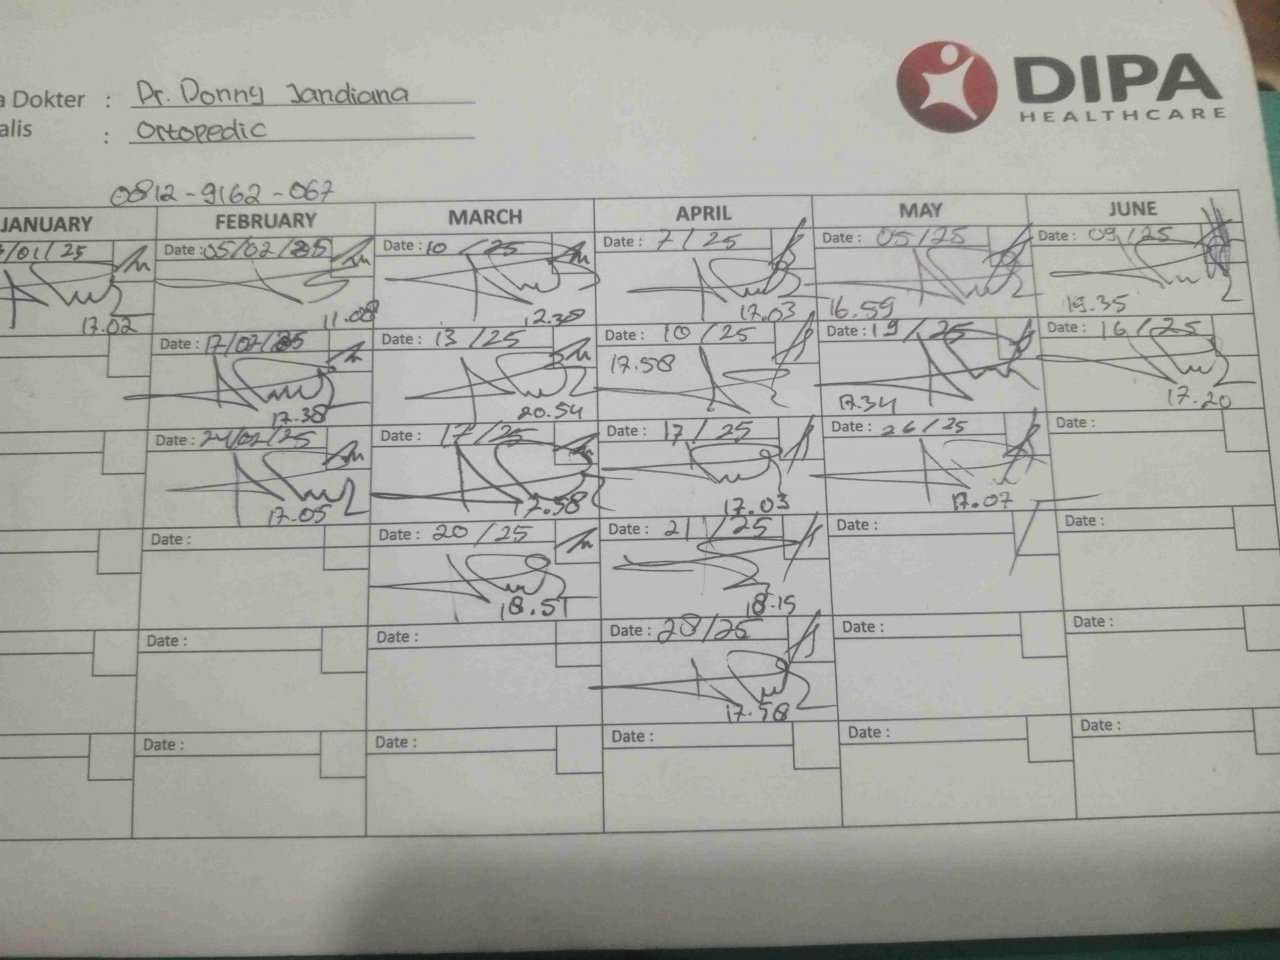 DIPA
HEALTHCARE
a Dokter : Dr. Donny Jandiana
alis : Ortopedic
0812-9162-067
JANUARY FEBRUARY MARCH APRIL MAY JUNE
/01/25 Date : 05/02/25 Date : 10 /25 Date : 7 /25 Date : 05/25 Date : 09/25
17.02 11.08 12.38 17.03 16.59 19.35
Date : 17/02/25 Date : 13 /25 Date : 10 /25 Date : 19 /25 Date : 16 /25
17.38 20.54 17.58 17.34 17.20
Date : 24/02/25 Date : 17 /25 Date : 17 /25 Date : 26/25 Date :
17.05 17.58 17.03 17.07
Date : Date : 20 /25 Date : 21 /25 Date : Date :
18.51 18.15
Date : Date : Date : 28/25 Date : Date :
17.58
Date : Date : Date : Date : Date :